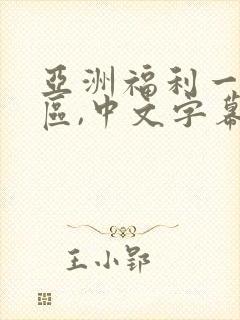 亞洲福利一
區,中文字幕
王小郢